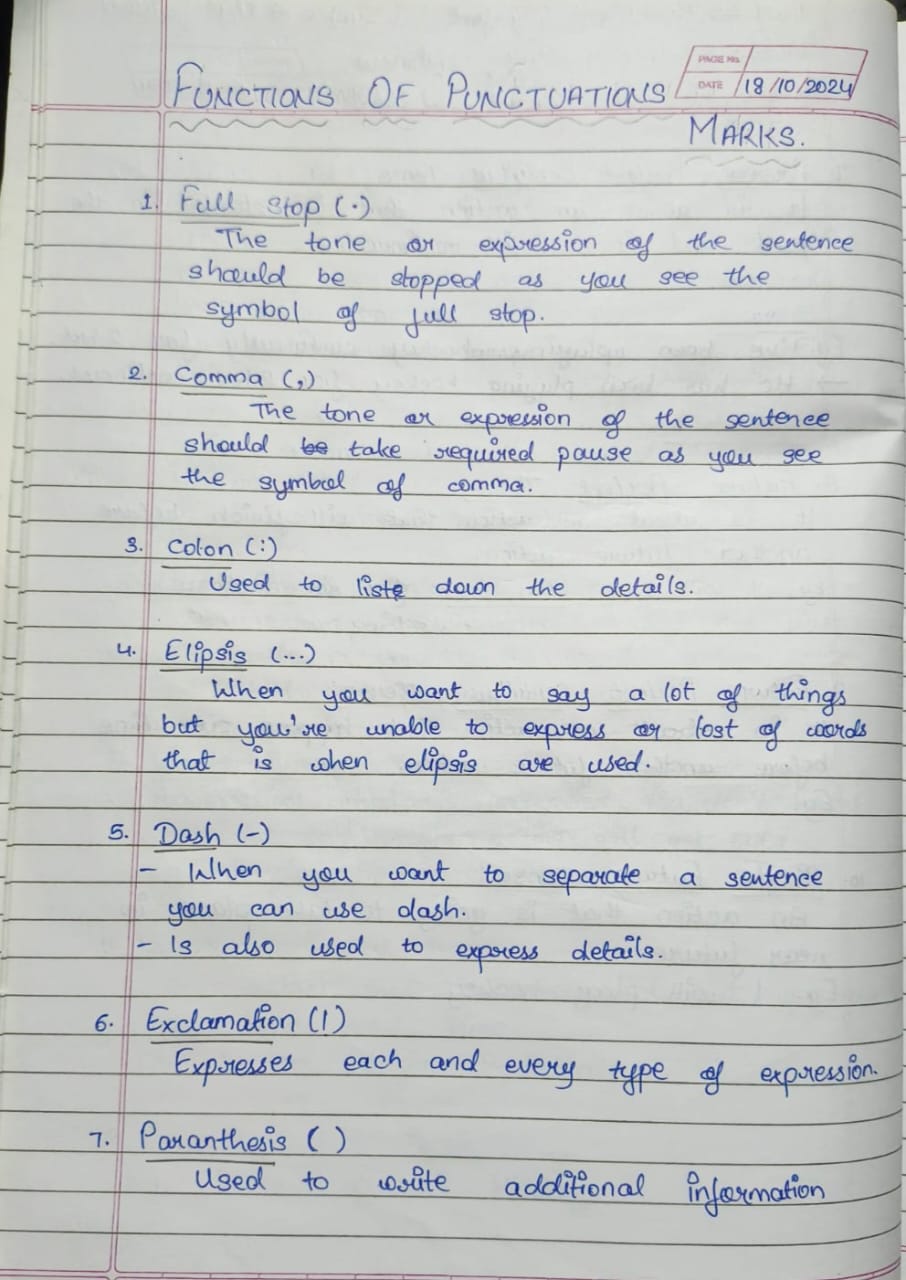 PAGE NO.
DATE 18/10/2024
FUNCTIONS OF PUNCTUATIONS
MARKS.
1. Full stop (.)
The tone or expression of the sentence
should be stopped as you see the
symbol of full stop.
2. Comma (,)
The tone or expression of the sentence
should be take required pause as you see
the symbol of comma.
3. Colon (:)
Used to liste down the details.
4. Elipsis (...)
When you want to say a lot of things
but you're unable to express or lost of words
that is when elipsis are used.
5. Dash (-)
- When you want to separate a sentence
you can use dash.
- Is also used to express details.
6. Exclamation (!)
Expresses each and every type of expression.
7. Paranthesis ( )
Used to write additional information